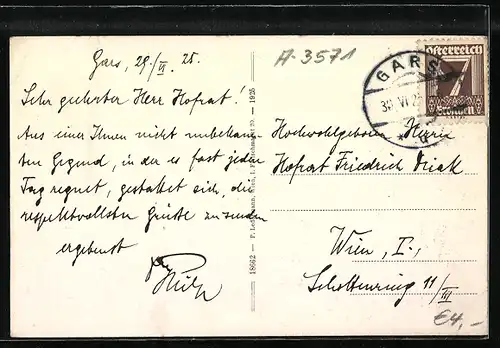 A-3571
Gars, 29./VI. 25.
Sehr geehrter Herr Hofrat!
Aus einer Ihnen nicht unbekann-
ten Gegend, in der es fast jeden
Tag regnet, gestattet sich, die
respektvollsten Grüße zu senden
ergebenst
18662 — P. Ledermann, Wien, I., 1925
GARS
30 VI 25
Österreich
7
Groschen
Hochwohlgeboren Herrn
Hofrat Friedrich
Wien, I.,
Schottenring 11/III
€4,-